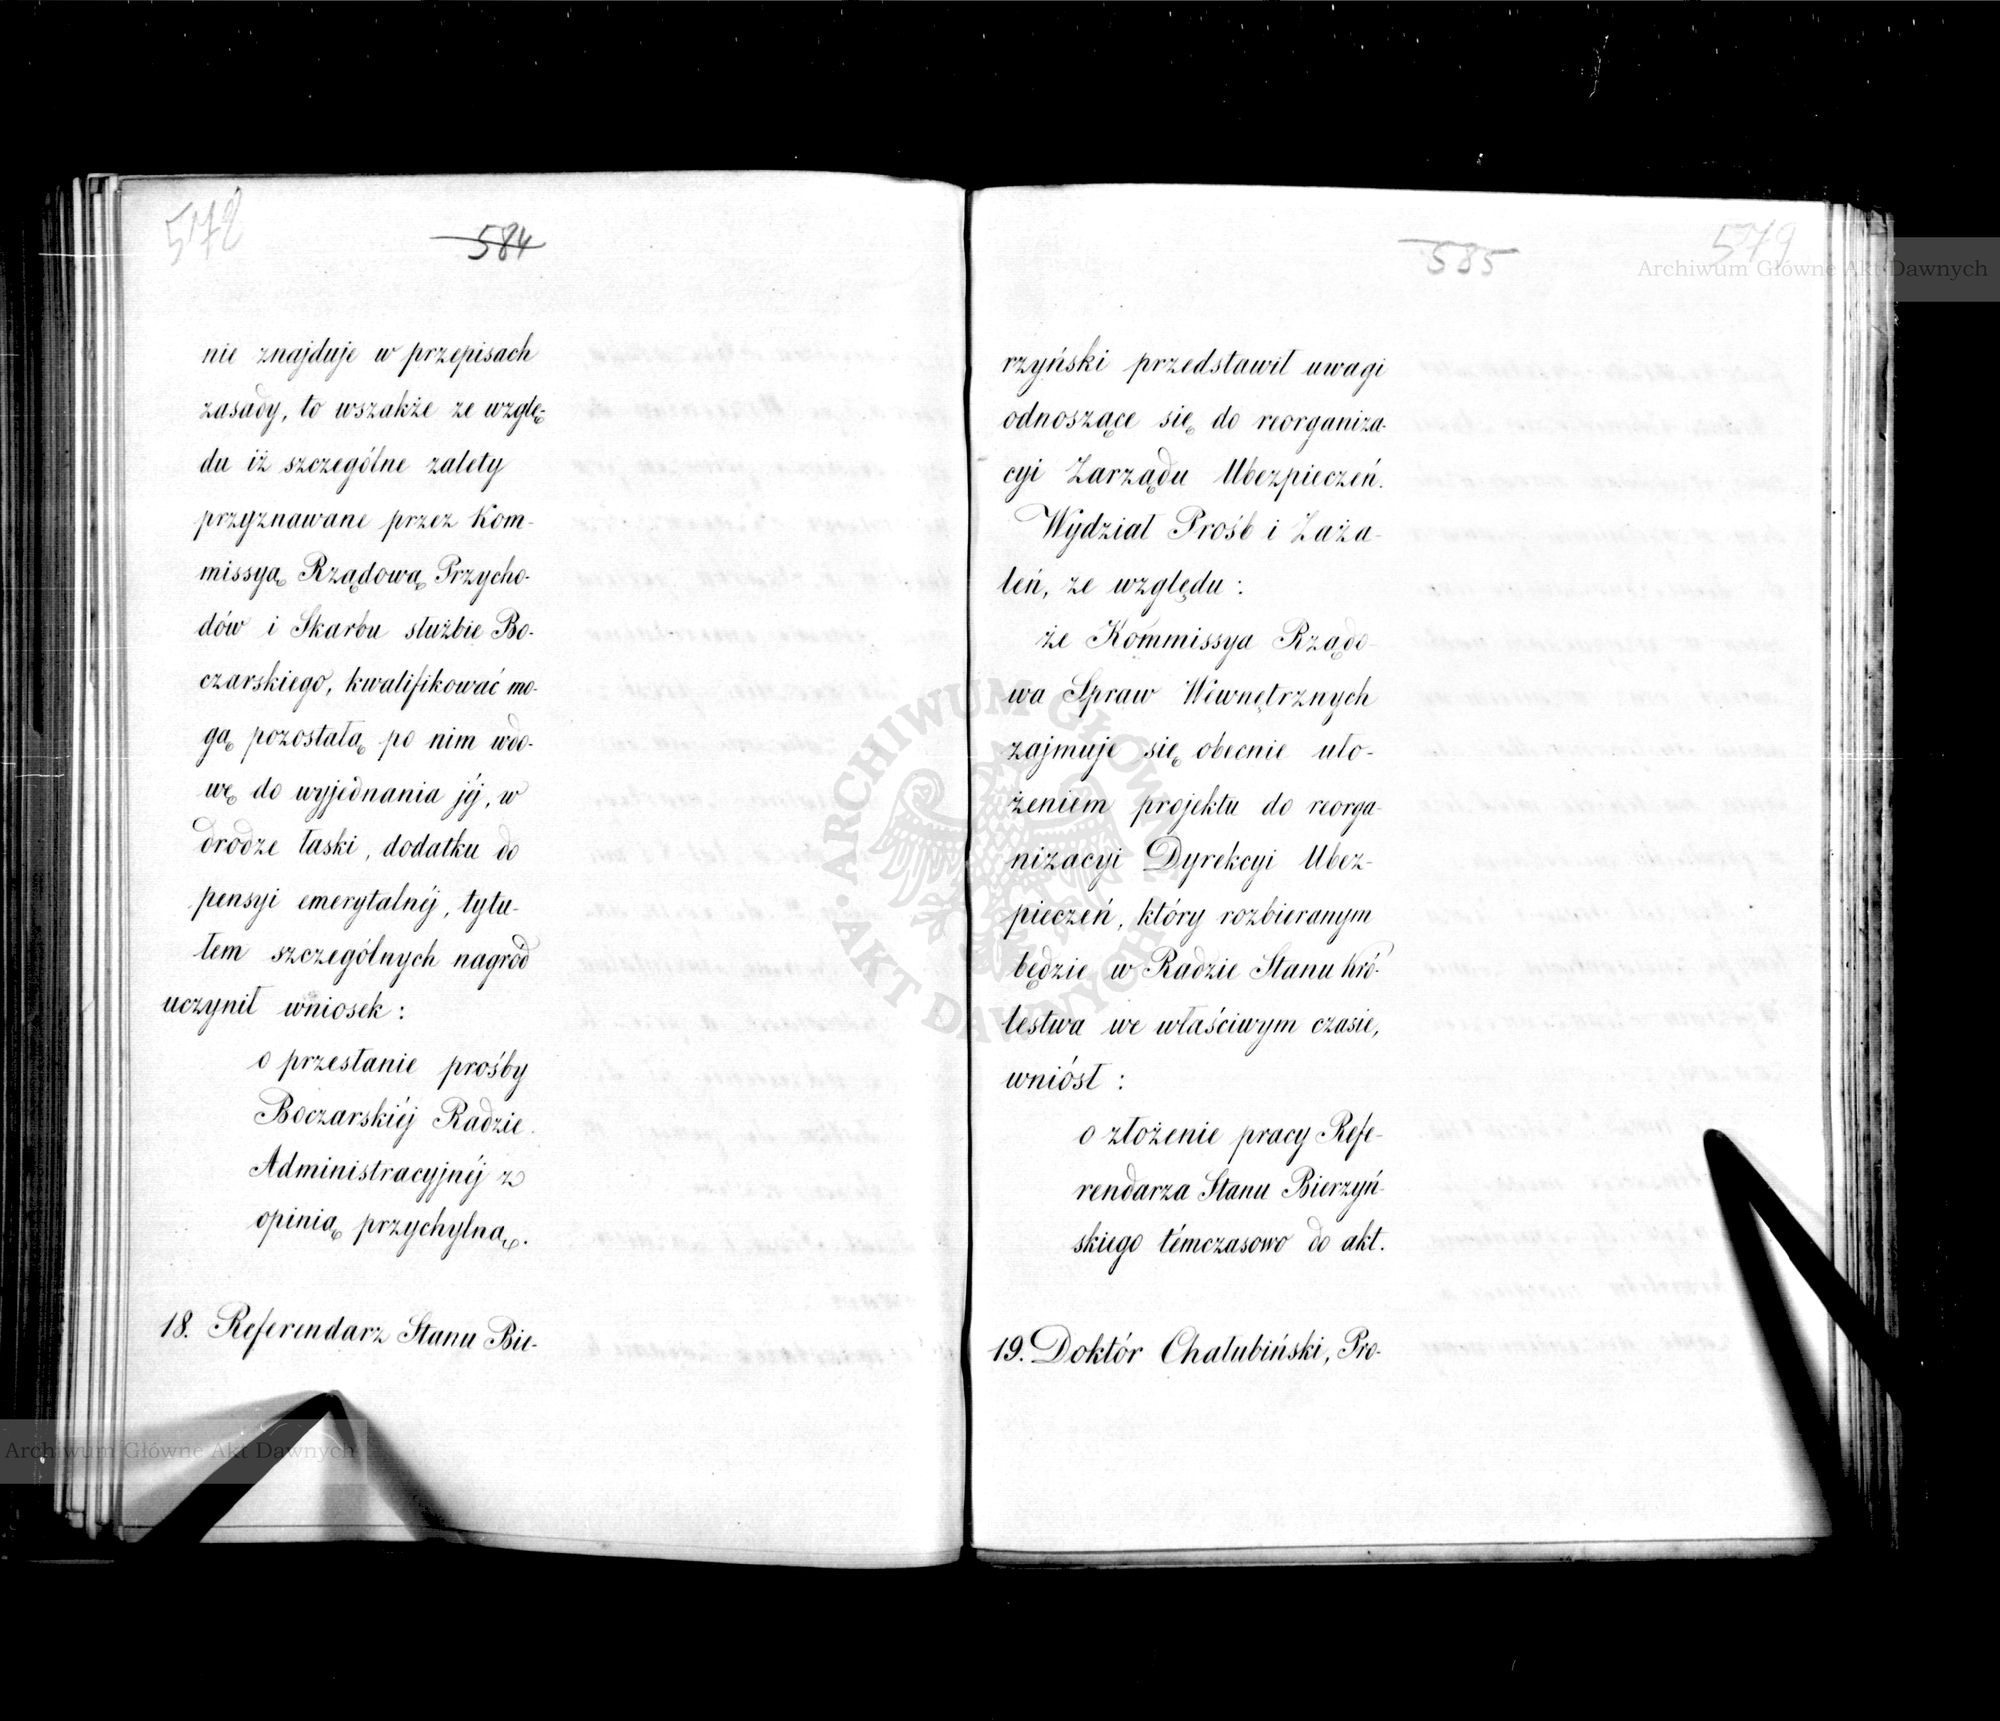 578
584
nie znajduje w przepisach
zasady, to wszakże ze wzglę-
du iż szczególne zalety
przyznawane przez Kom-
missyą Rządową Przycho-
dów i Skarbu służbie Bo-
czarskiego, kwalifikować mo-
gą pozostałą po nim wdo-
wę do wyjednania jéj, w
drodze łaski, dodatku do
pensyi emerytalnéj, tytu-
łem szczególnych nagród
uczynił wniosek:
o przesłanie prośby
Boczarskiéj Radzie
Administracyjnéj z
opinią przychylną.
18. Referendarz Stanu Bie-
579
585
rzyński przedstawił uwagi
odnoszące się do reorganiza-
cyi Zarządu Ubezpieczeń.
Wydział Prośb i Zaża-
leń, ze względu:
że Kommissya Rządo-
wa Spraw Wewnętrznych
zajmuje się obecnie uło-
żeniem projektu do reorga-
nizacyi Dyrekcyi Ubez-
pieczeń, który rozbieranym
będzie w Radzie Stanu Kró-
lestwa we właściwym czasie,
wniósł:
o złożenie pracy Refe-
rendarza Stanu Bierzyń-
skiego témczasowo do akt.
19. Doktór Chałubiński, Pro-
Archiwum Główne Akt Dawnych
Archiwum Główne Akt Dawnych
ARCHIWUM GŁÓWNE
AKT DAWNYCH